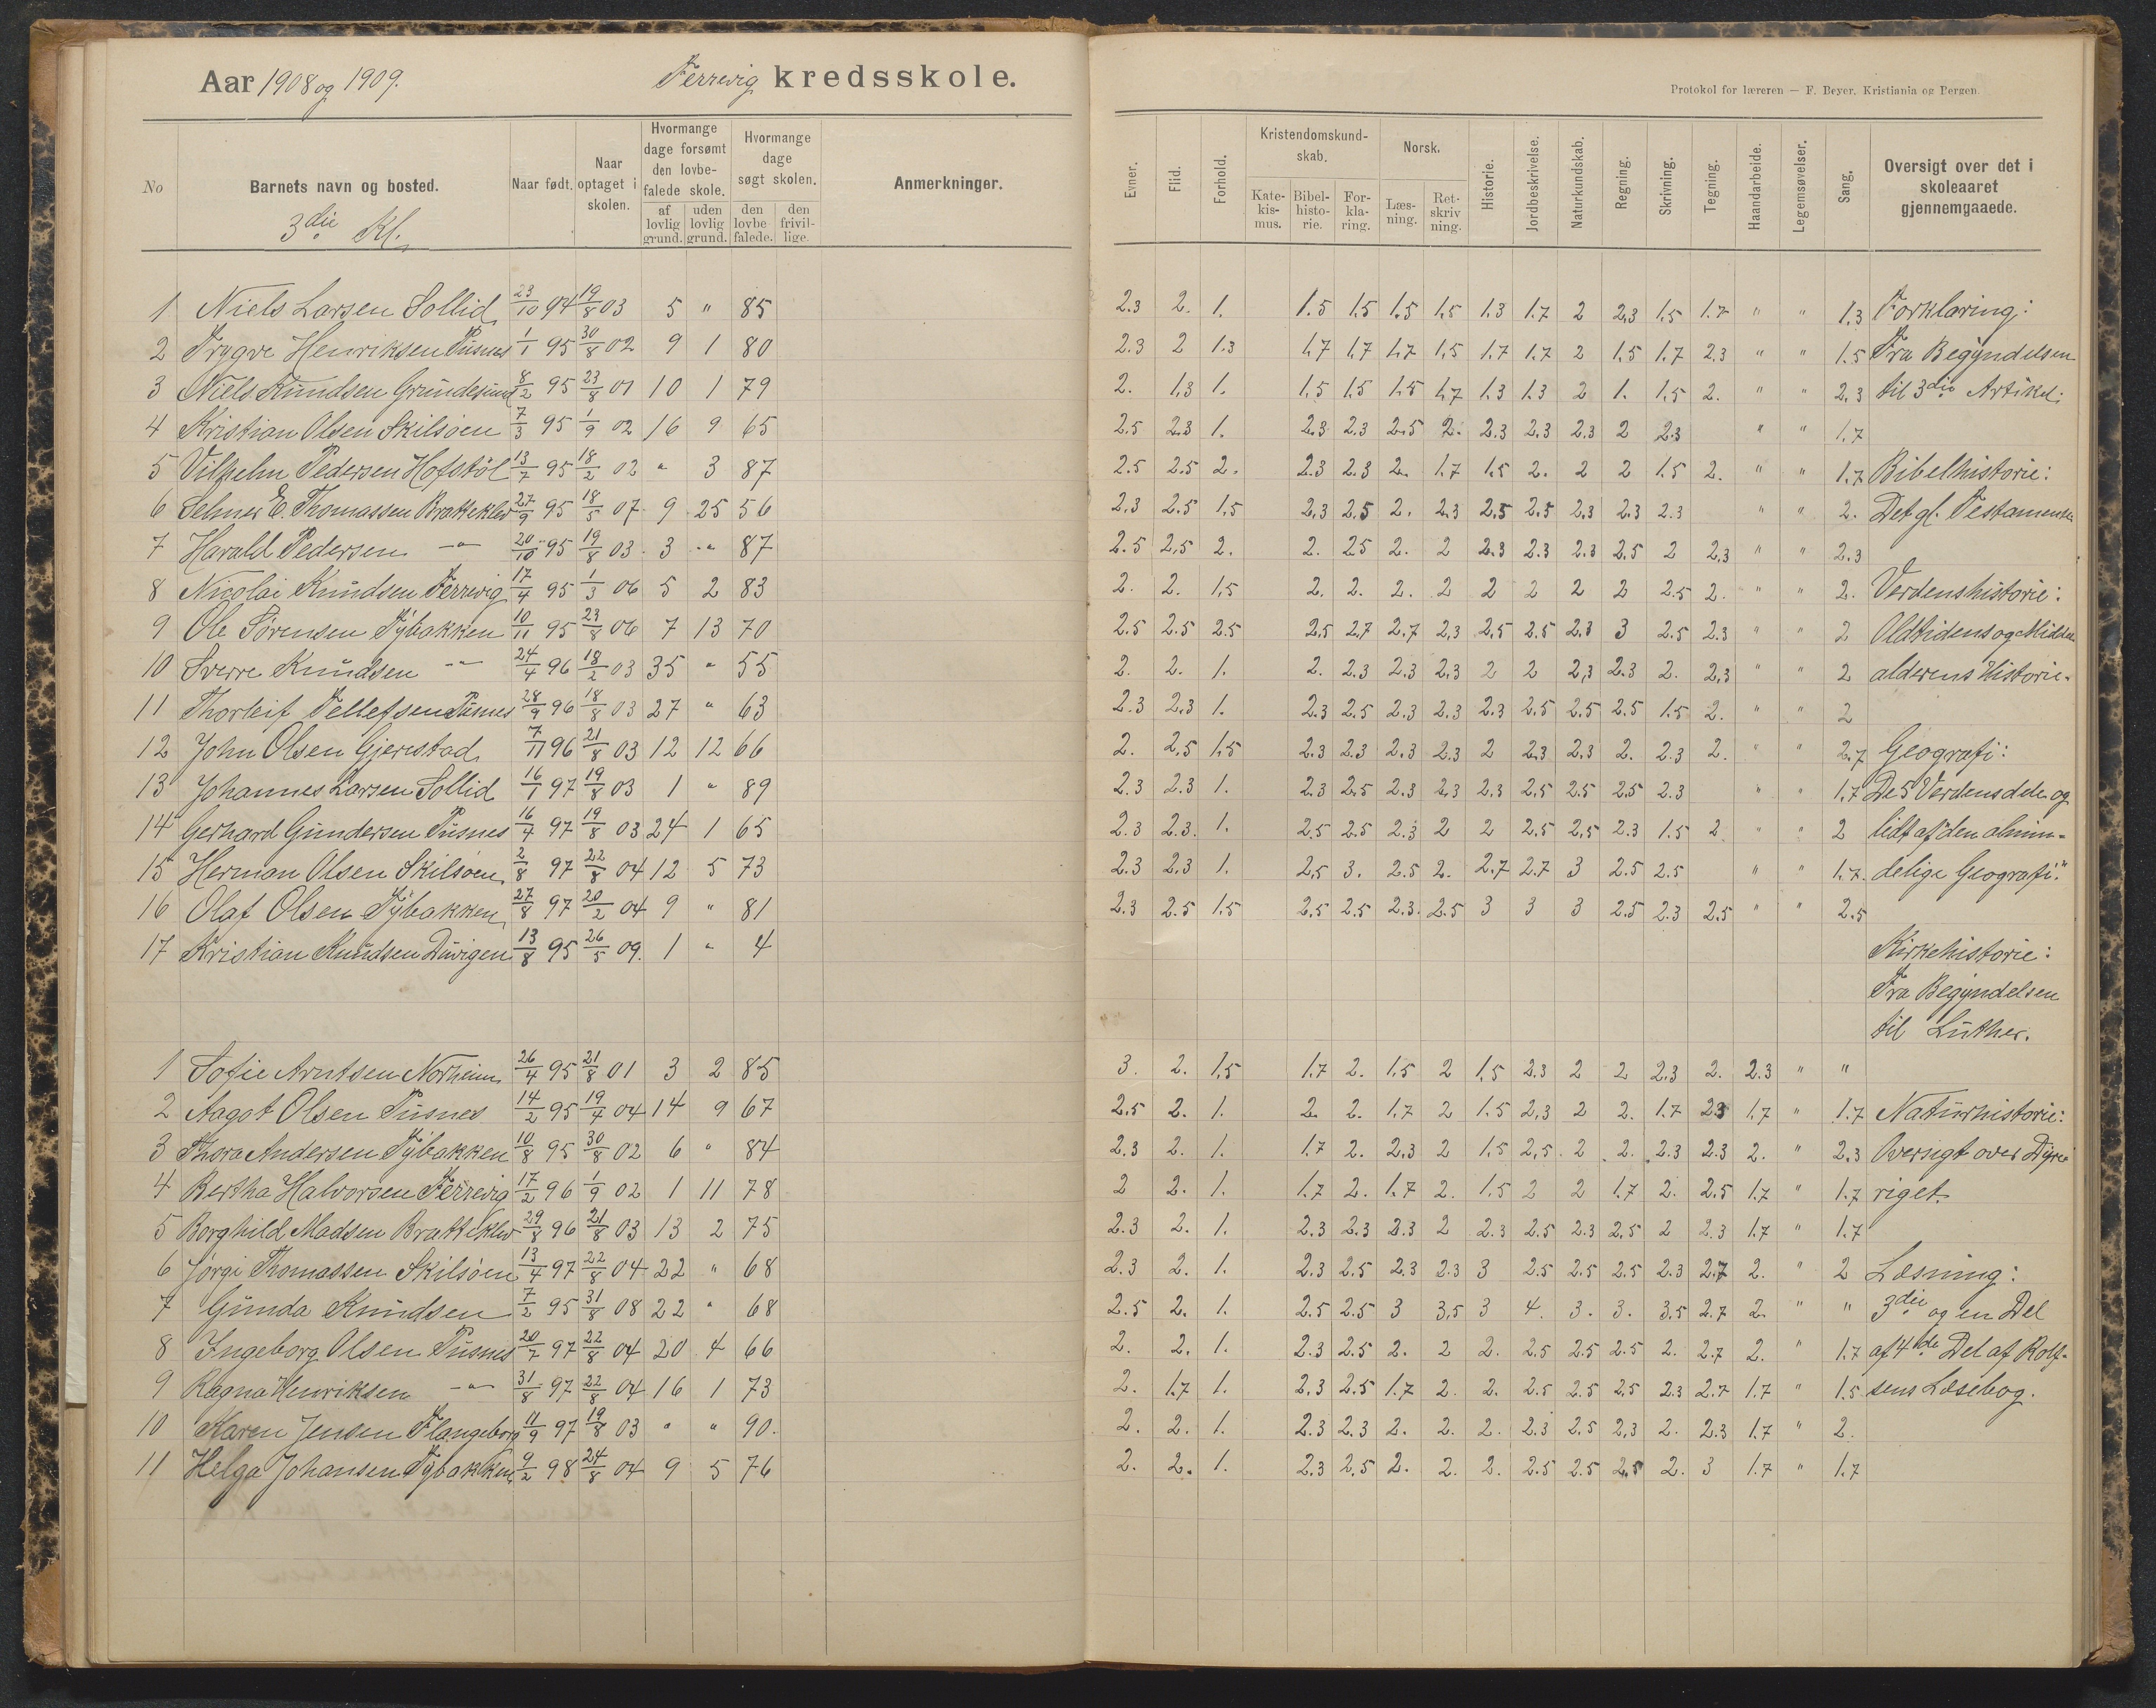 Aar 1908 og 1909. Ferrevig kredsskole.
Protokol for læreren — F. Beyer. Kristiania og Bergen.
No Barnets navn og bosted. Naar født. Naar optaget i skolen. Hvormange dage forsømt den lovbefalede skole. af lovlig grund. uden lovlig grund. Hvormange dage søgt skolen. den lovbefalede. den frivillige. Anmerkninger.
Evner. Flid. Forhold. Kristendomskundskab. Katekismus. Bibelhistorie. Forklaring. Norsk. Læsning. Retskrivning. Historie. Jordbeskrivelse. Naturkundskab. Regning. Skrivning. Tegning. Haandarbeide. Legemsøvelser. Sang. Oversigt over det i skoleaaret gjennemgaaede.
3die Kl.
1 Niels Larsen Sollid 23/10 94 19/8 03 5 " 85 2.3 2. 1. 1.5 1.5 1.5 1.5 1.3 1.7 2 2.3 1.5 1.7 " " 1.3 Forklaring:
2 Trygve Henriksen Pusnes 1/1 95 30/8 02 9 1 80 2.3 2 1.3 1.7 1.7 1.7 1.5 1.7 1.7 2 1.5 1.7 2.3 " " 1.5 Fra Begyndelsen
3 Niels Knudsen Grundesund 8/2 95 23/8 01 10 1 79 2. 1.3 1. 1.5 1.5 1.5 1.7 1.3 1.3 2 1. 1.5 2. " " 2.3 til 3die Artikel:
4 Kristian Olsen Skilsøen 7/3 95 1/9 02 16 9 65 2.5 2.3 1. 2.3 2.3 2.5 2. 2.3 2.3 2.3 2 2.3 " " 1.7
5 Vilhelm Pedersen Hofstøl 13/7 95 18/2 02 " 3 87 2.5 2.5 2. 2.3 2.3 2. 1.7 1.5 2. 2 2 1.5 2. " " 1.7 Bibelhistorie:
6 Selmer E. Thomassen Bratteklev 27/9 95 18/5 07 9 25 56 2.3 2.5 1.5 2.3 2.5 2. 2.3 2.5 2.5 2.3 2.3 2.3 " " 2. Det gl. Testamente
7 Harald Pedersen —"— 20/10 95 19/8 03 3 " 87 2.5 2.5 2. 2. 25 2. 2 2.3 2.3 2.3 2.5 2 2.3 " " 2.3
8 Nicolai Knudsen Ferrevig 17/4 95 1/3 06 5 2 83 2. 2. 1.5 2. 2. 2. 2 2 2 2 2 2.5 2. " " 2. Verdenshistorie:
9 Ole Sørensen Tybakken 10/11 95 23/8 06 7 13 70 2.5 2.5 2.5 2.5 2.7 2.7 2.3 2.5 2.5 2.3 3 2.5 2.3 " " 2 Oldtidens og Middel
10 Sverre Knudsen —"— 24/4 96 18/2 03 35 " 55 2. 2. 1. 2. 2.3 2.3 2.3 2 2 2.3 2.3 2. 2.3 " 2 alderens Historie.
11 Thorleif Tellefsen Pusnes 28/9 96 18/8 03 27 " 63 2.3 2.3 1. 2.3 2.5 2.3 2.3 2.3 2.5 2.5 2.5 1.5 2. " " 2
12 John Olsen Gjerstad 7/11 96 21/8 03 12 12 66 2. 2.5 1.5 2.3 2.3 2.3 2.3 2 2.3 2.3 2. 2.3 2. " " 2.7 Geografi:
13 Johannes Larsen Sollid 16/1 97 19/8 03 1 " 89 2.3 2.3 1. 2.3 2.5 2.3 2.3 2.3 2.5 2.5 2.5 2.3 " " 1.7 De 5 Verdensdele og
14 Gerhard Gundersen Pusnes 16/4 97 19/8 03 24 1 65 2.3 2.3. 1. 2.5 2.5 2.3 2 2 2.5 2.5 2.3 1.5 2 " " 2 lidt af "den almin-
15 Herman Olsen Skilsøen 2/8 97 22/8 04 12 5 73 2.3 2.3 1. 2.5 3. 2.5 2. 2.7 2.7 3 2.5 2.5 " " 1.7. delige Geografi."
16 Olaf Olsen Tybakken 27/8 97 20/2 04 9 " 81 2.3 2.5 1.5 2.5 2.5 2.3. 2.5 3 3 3 2.5 2.3 2.5 " " 2.5
17 Kristian Knudsen 13/8 95 26/5 09. 1 " 4 Kirkehistorie:
Fra Begyndelsen
til Luther.
1 Sofie Arntsen Norheim 26/4 95 21/8 01 3 2 85 3. 2. 1.5 1.7 2. 1.5 2 1.5 2.3 2 2 2.3 2. 2.3 " "
2 Aagot Olsen Pusnes 14/2 95 19/4 04 14 9 67 2.5 2. 1. 2. 2. 1.7 2 1.5 2.3 2 2. 1.7 2.3 1.7 " 1.7 Naturhistorie:
3 Thora Andersen Tybakken 10/8 95 30/8 02 6 " 84 2.3 2. 1. 1.7 2. 2.3 2 1.5 2.5. 2 2. 2.3 2.3 2. " 2.3 Oversigt over Dyre
4 Bertha Halvorsen Ferrevig 17/2 96 1/9 02 1 11 78 2 2. 1. 1.7 2. 1.7 2. 1.5 2 2 1.7 2. 2.5 1.7 " 1.7 riget.
5 Borghild Madsen Bratteklev 29/8 96 21/8 03 13 2 75 2.3 2. 1. 2.3 2.3 2.3 2 2.3 2.5 2.3 2.5 2 2.3 1.7 " 1.7
6 Jørgi Thomassen Skilsøen 13/4 97 22/8 04 22 " 68 2.3 2. 1. 2.3 2.5 2.3 2.3 3 2.5 2.5 2.5 2.3 2.7 2. " 2 Læsning:
7 Gunda Knudsen 7/2 95 31/8 08 22 " 68 2.5 2. 1. 2.5 2.5 3 3.5 3 4. 3. 3. 3.5 2.7 2. " " 3die og en Del
8 Ingeborg Olsen Pusnes 20/7 97 22/8 04 20 4 66 2. 2. 1. 2.3 2.5 2. 2 2. 2.5 2.5 2.5 2. 2.7 2. " 1.7 af 4de Del af Rolf-
9 Ragna Henriksen —"— 31/8 97 22/8 04 16 1 73 2. 1.7 1. 2.3 2.5 1.7 2. 2. 2.5 2.5 2.5 2.3 2.7 1.7 " 1.5 sens Læsebog.
10 Karen Jensen Flangeborg 11/9 97 19/8 03 " " 90. 2. 2. 1. 2.3 2.3 2. 2. 2. 2.3 2.5 2.3 2. 2.3 1.7 " 2.
11 Helga Johansen Tybakken 9/2 98 24/8 04 9 5 76 2. 2. 1. 2.3 2.5 2. 2. 2. 2.5 2.5 2.5 2. 3 1.7 " 1.7